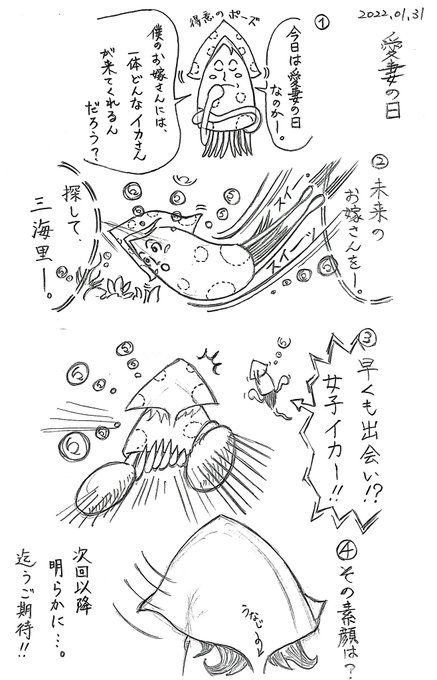 2022.01.31
愛妻の日
①
得意のポーズ
今日は愛妻の日
なのかー。
僕のお嫁さんには、
一体どんなイカさん
が来てくれるん
だろう?
②
未来の
お嫁さんをー。
スイー
スイーッ
探して、
三海里ー。
③
早くも出会い!?
女子イカー!!
④
その素顔は?
うなじ
次回以降
明らかに…。
迄うご期待!!